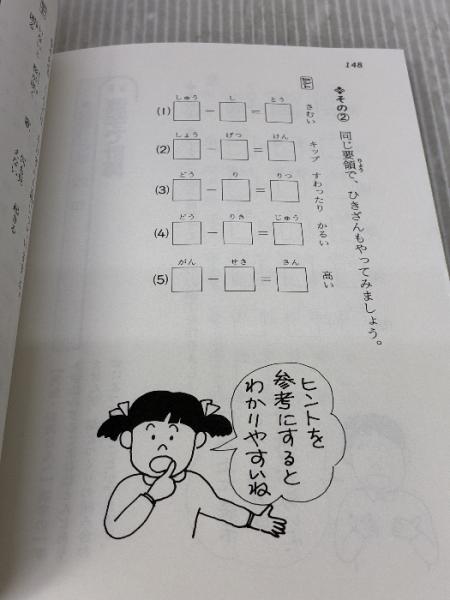 148
その② 同じ要領で、ひきざんもやってみましょう。
りょう
ヒント
しゅう し とう
(1) □－□＝□ さむい
しょう げつ けん
(2) □－□＝□ キップ
どう り りつ
(3) □－□＝□ すわったり
どう りき じゅう
(4) □－□＝□ かるい
がん せき さん
(5) □－□＝□ 高い
ヒントを
参考にすると
わかりやすいね